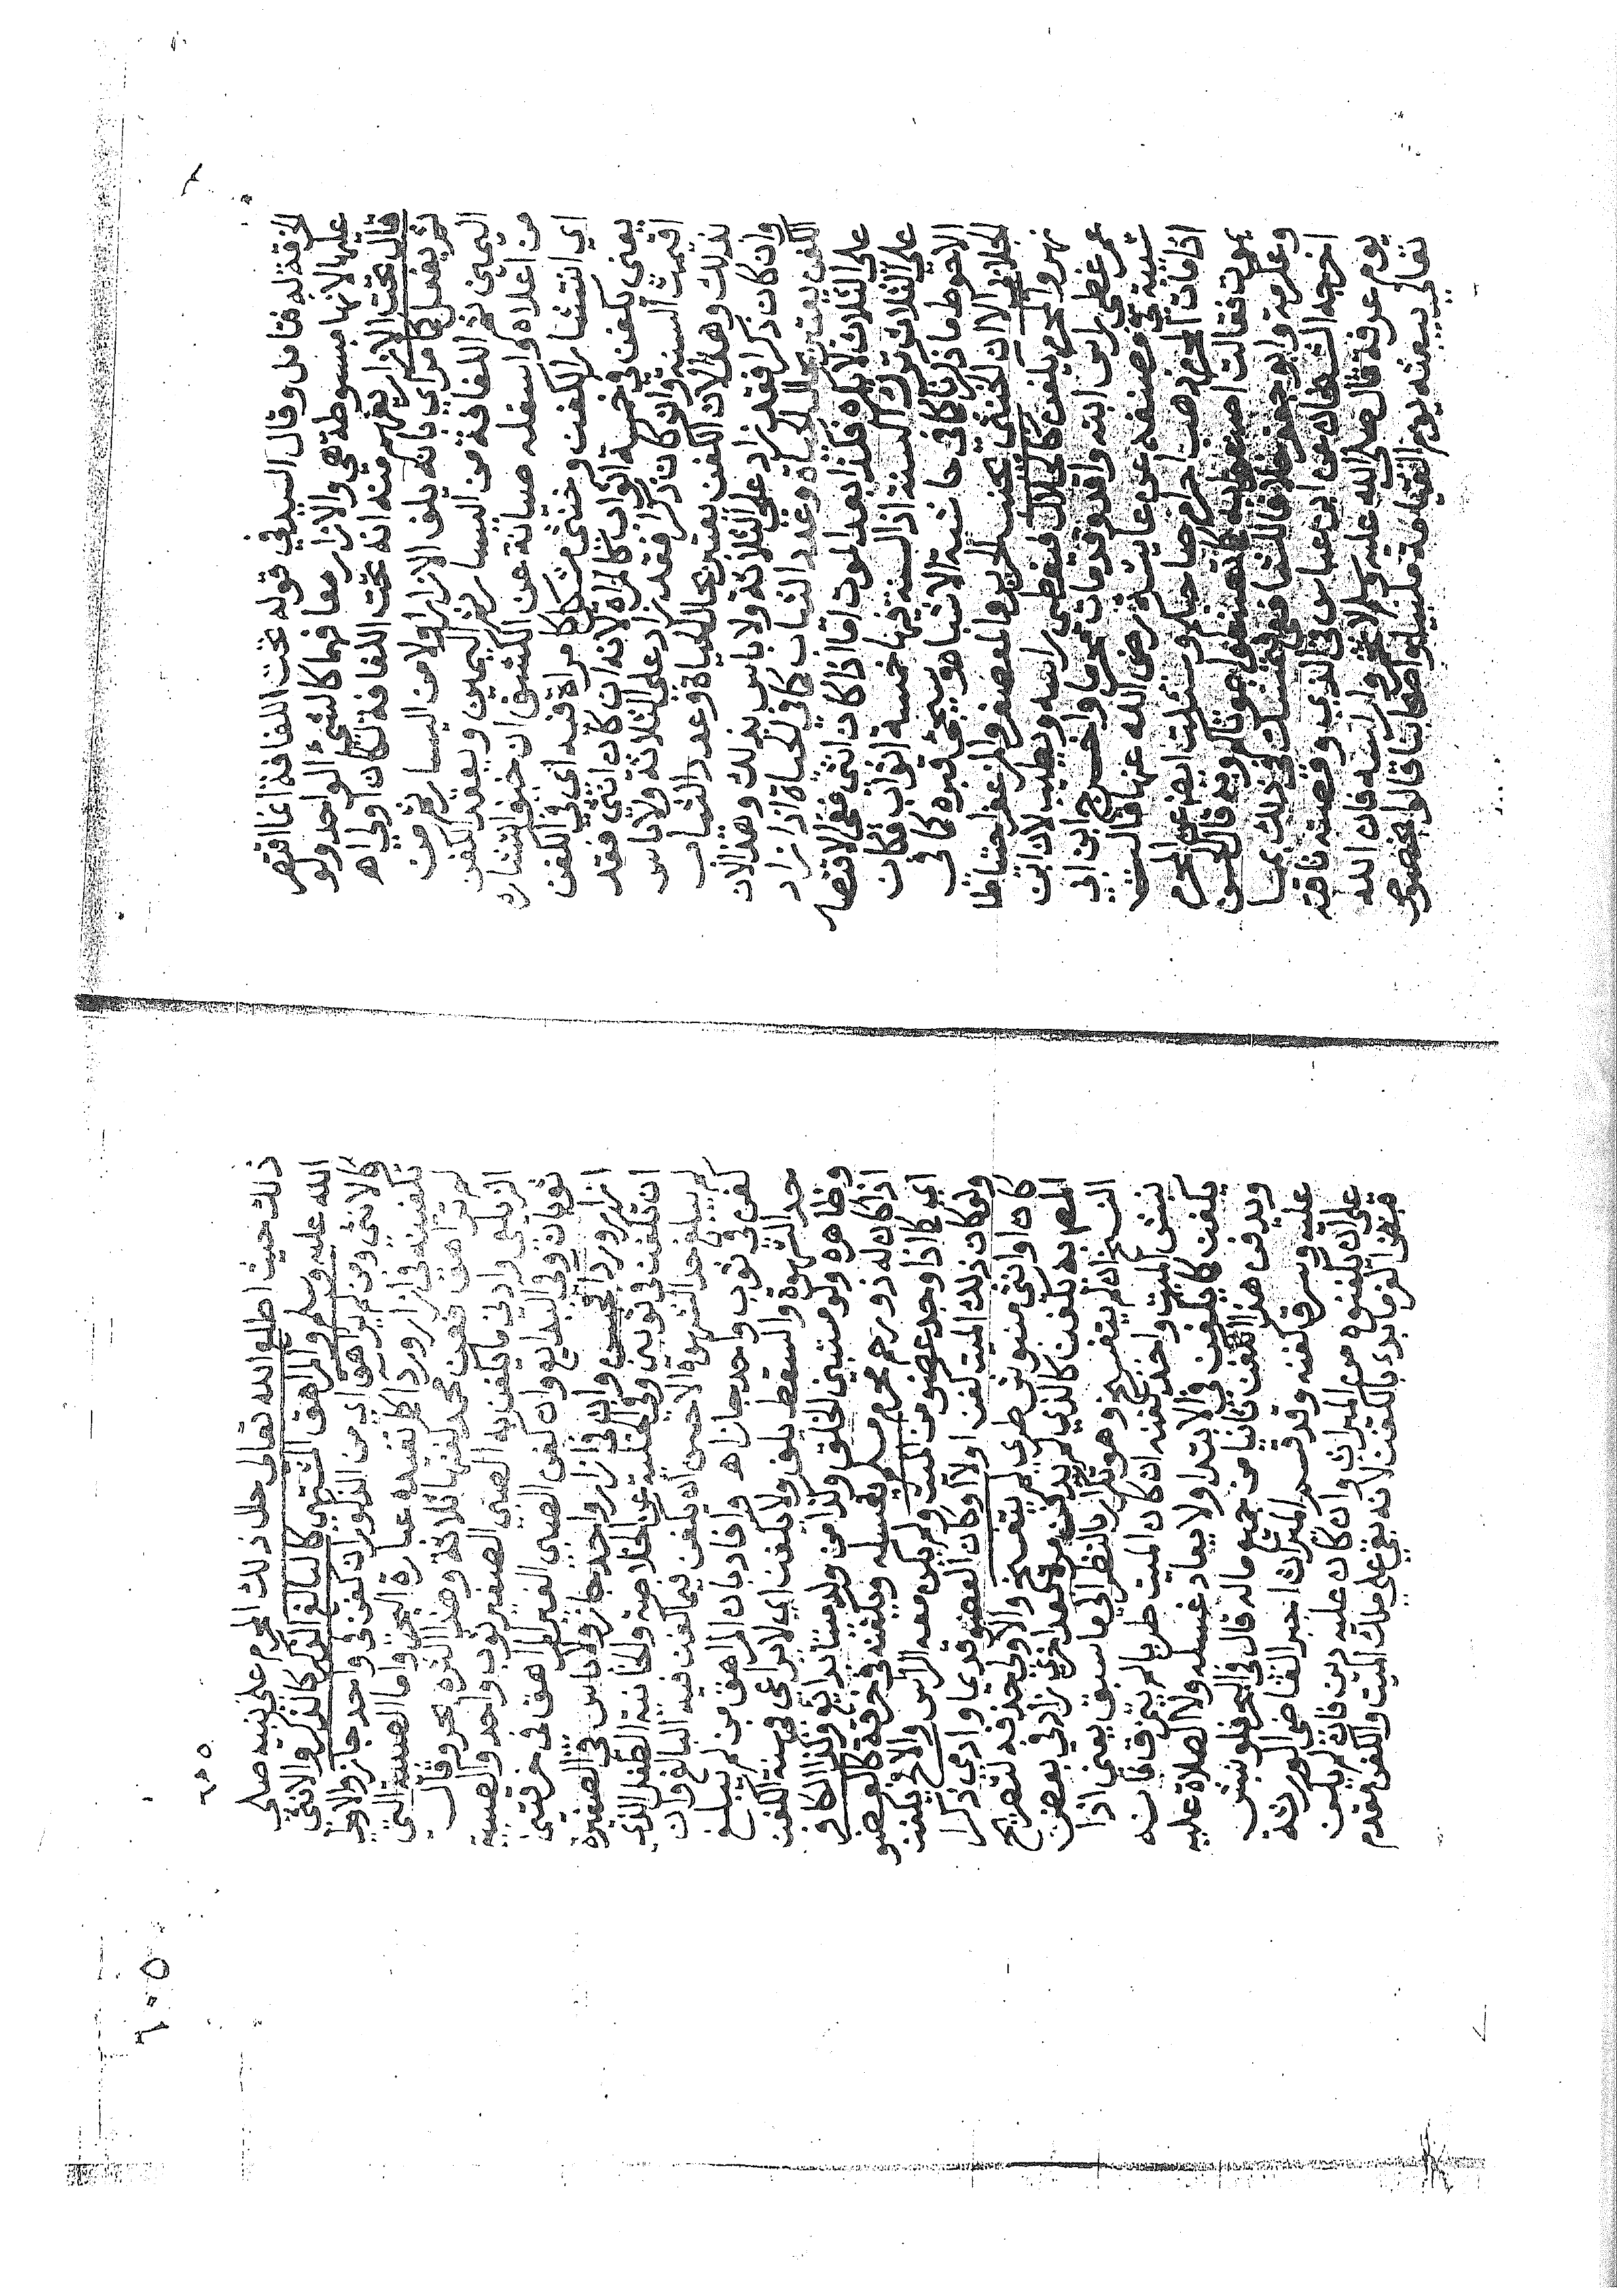 الخرقة له فتامل وقال السيد في قوله تحت اللفافة انما اقتصر
عليها لانها مبسوطة هي والازار معا فهما كالشيء الواحد ولو
قال تحت الازار يفهم منه انه تحت اللفافة لكان اولى اه
ثم يفعل كما مر اي بانه يلف الازار اولا من اليسار ثم من
اليمين ثم اللفافة من اليسار ثم اليمين ويعقد الكفن
من اعلاه واسفله صيانة عن الكشف ان خيف انتشاره
اي انتشار الكفن وخنثى مشكل كامراة فيه اي في الكفن
يعني يكفن في خمسة اثواب كالمراة لانه ان كان انثى فقد
اقيمت السنة وان كان ذكرا فقد زاد على الثلاثة ولا باس
بذلك وهذا لان الكفن يعتبر بحال الحياة وعدد الثياب
وان كان ذكرا فقد زاد على الثلاثة ولا باس بذلك وهذا لان
الكفن يعتبر بحال الحياة وعدد الثياب كما في الحياة اذا زاد
على الثلاث لا يكره فكذا بعد الموت اما اذا كان انثى ففي الاقتصار
على الثلاث ترك السنة اذ السنة فيها خمسة اثواب فكان
الاحوط ما ذكرنا كما في حاشية الاشباه ويسجى قبره كما في
الجلابي الا ان الخنثى يجنب الحرير والمعصفر والمزعفر احتياطا
نهر والمحرم يكفن كالحلال فيغطى راسه ويطيب لان ابن
عمر غطى راس ابنه واقد وقد مات محرما واخرج ابن ابي
شيبة في مصنفه عن عائشة رضي الله عنها قالت
اذا مات المحرم ذهب احرام صاحبكم وسئلت ايضا عن المحرم
يموت فقالت اصنعوا به كما تصنعون بموتاكم وبه قال الحسن
وعكرمة وابو جعفر خلافا للشافعي متمسك في ذلك بما
اخرجه الشيخان عن ابن عباس في الذي وقصته ناقته
يوم عرفة قال صلى الله عليه وسلم لا تخمروا راسه فان الله
تعالى يبعثه يوم القيامة ملبيا واصحابنا قالوا بخصوص
ذلك حيث اطلع الله تعالى حال ذلك المحرم على نبيه صلى
الله عليه وسلم والمراهق المشتهى كالبالغ الذكر كالذكر والانثى
كالانثى ومن لم يراهق اي من الذكور ان كفن في واحد جاز ولا ولي
تكفينه في ازار ورداء كما تفيده عبارة البحر واما الصبية التي
لم تراهق فعن محمد كفنها ثلاثة وهذا اكثره بحر وقال
الزيلعي وادنى ما يكفن به الصبي الصغير ثوب واحد والصبية
ثوبان وفي البدايع وان كفن الصبي الغير المراهق في خرقتين
ازار ورداء فحسن وان في ازار واحد جاز ولا باس في الصغيرة
ان تكفن في ثوبين وفي الحلية عن الخلاصة والخانية الطفل الذي
لم يبلغ حد الشهوة الاحسن ان يكفن فيما يكفن فيه البالغ وان
كفن في ثوب واحد جاز اه وافاد بان المراهق من لم يبلغ
حد الشهوة والسقط يلف ولا يكفن اي لا يراعى فيه سنة الكفن
وظاهره ولو مستبين الخلق وكذا من ولد ميتا بدايع وكذا الكافر
اذا كان له ذو رحم محرم مسلم يغسله ويكفنه في خرقة كالعضو
اي كما اذا وجد عضو من الميت ولم يكن معه الراس والا يكفن
ولو كان ذلك الميت كفن اولا او كان العضو قديما وادمي ذكرا
كان او انثى منبوش طري لم يتفسخ والاولى حذفه لتصريح
المص به يكفن كالذي لم يدفن مرة بعد اخرى زاد في بعض
النسخ ان لم يتفسخ وهو تكرار بالنظر الى ما سبق يعني اذا
نبش الميت واخذ كفنه ان كان الميت طريا لم يتمزق فانه
يكفن كما يكفن في الابتداء ولا يعاد غسله ولا الصلاة عليه
ويدفن هذا الكفن ثانيا من جميع ماله قال في البحر فلو نبش
عليه وسرق كفنه وقد قسم الميراث اجبر القاضي الورثة
على ان يكفنوه من الميراث وان كان عليه دين فان لم يكن
قبض الغرماء بدئ بالكفن لانه بقي على ملك الميت والكفن مقدم